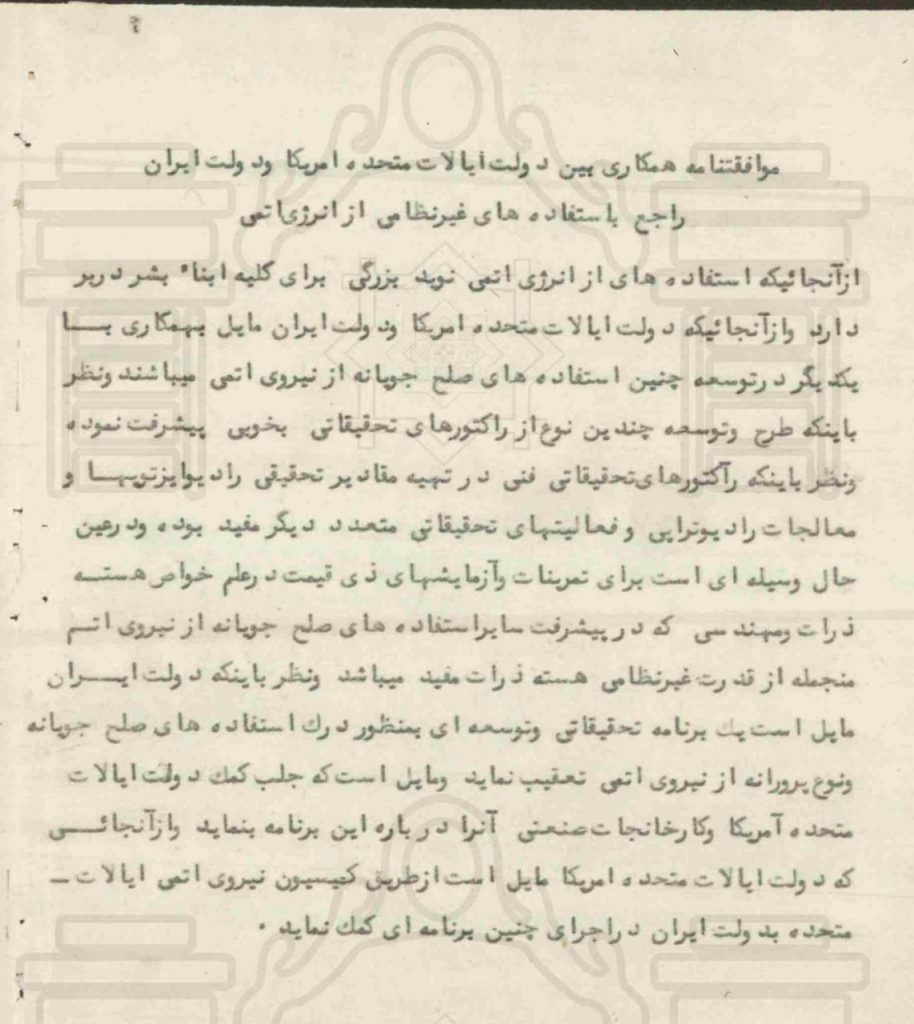 موافقتنامه همکاری بین دولت ایالات متحده امریکا ودولت ایران
راجع باستفاده های غیرنظامی از انرژی اتمی
ازآنجائیکه استفاده های از انرژی اتمی نوید بزرگی برای کلیه ابناء بشر دربر
دارد وازآنجائیکه دولت ایالات متحده امریکا ودولت ایران مایل بهمکاری بـــا
یکدیگر درتوسعه چنین استفاده های صلح جویانه از نیروی اتمی میباشند ونظر
باینکه طرح وتوسعه چندین نوع از راکتورهای تحقیقاتی بخوبی پیشرفت نموده
ونظر باینکه رآکتورهای تحقیقاتی فنی در تهیه مقادیر تحقیقی رادیوایزتوپهـــا و
معالجات رادیوتراپی و فعالیتهای تحقیقاتی متعدد دیگر مفید بوده ودرعین
حال وسیله ای است برای تمرینات وآزمایشهای ذی قیمت درعلم خواص هستـــه
ذرات ومهندسی که در پیشرفت سایراستفاده های صلح جویانه از نیروی اتـــم
منجمله از قدرت غیرنظامی هسته ذرات مفید میباشد ونظر باینکه دولت ایـــران
مایل است یك برنامه تحقیقاتی وتوسعه ای بمنظور درك استفاده های صلح جویانه
ونوع پرورانه از نیروی اتمی تعقیب نماید ومایل است که جلب کمك دولت ایالات
متحده آمریکا وکارخانجات صنعتی آنرا در باره این برنامه بنماید وازآنجائـــی
که دولت ایالات متحده امریکا مایل است ازطریق کمیسیون نیروی اتمی ایالات ــ
متحده بدولت ایران دراجرای چنین برنامه ای کمك نماید .